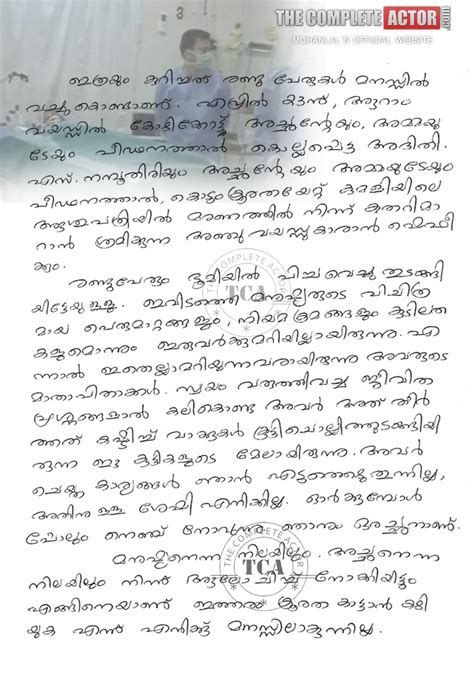 THE COMPLETE ACTOR .com
MOHANLAL'S OFFICIAL WEBSITE
ഇത്രയും കുറിച്ചത് രണ്ടു പേരുകൾ മനസ്സിൽ
വച്ചുകൊണ്ടാണ്. ഏപ്രിൽ, ആറാം
വയസ്സിൽ കോഴിക്കോട്ട് അച്ഛന്റേയും, അമ്മയു
ടേയും പീഢനത്താൽ കൊല്ലപ്പെട്ട അദിതി.
എസ്. നമ്പൂതിരിയും അച്ഛന്റേയും അമ്മയുടേയും
പീഢനത്താൽ, കൊടുംക്രൂരതയേറ്റ് കമഴിയിലെ
ആശുപത്രിയിൽ മരണത്തിൽ നിന്ന് കുതറിമാ
റാൻ ശ്രമിക്കുന്ന അഞ്ചു വയസ്സുകാരാൻ ഷെഫീ
ക്കും.
രണ്ടുപേരും ഭൂമിയിൽ പിച്ചവെച്ചു തുടങ്ങി
യിട്ടേയുള്ളു. ഇവിടത്തെ മനുഷ്യരുടെ വിചിത്ര
മായ പെരുമാറ്റങ്ങളും, നിയമക്രമങ്ങളും കുടിലത
കളുമൊന്നും ഇരുവർക്കുമറിയില്ലായിരുന്നു. എ
ന്നാൽ ഇതെല്ലാമറിയുന്നവരായിരുന്നു അവരുടെ
മാതാപിതാക്കൾ. സ്വയം വരുത്തിവച്ച ജീവിത
പ്രശ്നങ്ങളാൽ കലികൊണ്ട അവർ അത് തീർ
ത്തത് കഷ്ടിച്ച് വാക്കുകൾ കൂട്ടിചൊല്ലിത്തുടങ്ങിയി
രുന്ന ഈ കുട്ടികളുടെ മേലായിരുന്നു. അവർ
ചെയ്ത കാര്യങ്ങൾ ഞാൻ എടുത്തെഴുതുന്നില്ല,
അതിനുള്ള ശേഷി എനിക്കില്ല. ഓർക്കുമ്പോൾ
പോലും നെഞ്ച് നോവുന്നു ഞാനും ഒരച്ഛനാണ്.
മനുഷ്യനെന്ന നിലയിലും. അച്ഛനെന്ന
നിലയിലും നിന്ന് ആലോചിച്ച് നോക്കിയിട്ടും
എങ്ങിനെയാണ് ഇത്തരം ക്രൂരത കാട്ടാൻ കഴി
യുക എന്ന് എനിക്ക് മനസ്സിലാകുന്നില്ല.
THE COMPLETE ACTOR
TCA
THE COMPLETE ACTOR
TCA